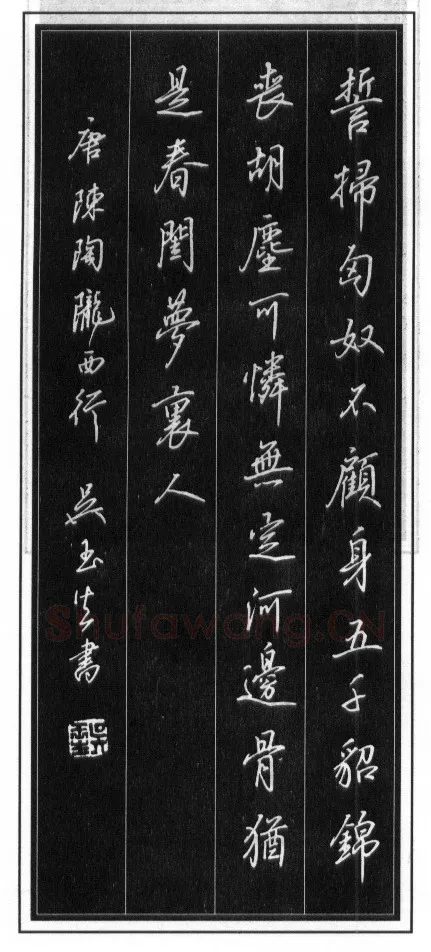 誓掃匈奴不顧身五千貂錦
喪胡塵可憐無定河邊骨猶
是春閨夢裏人
唐陳陶隴西行 吳玉生書
Shufawang.CN